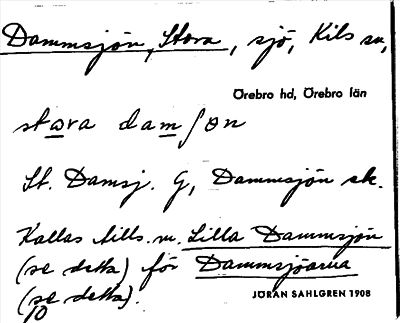 Dammsjön, Stora, sjö, Kils sn,
Örebro hd, Örebro län
stora damʃon
St. Damsj. G, Dammsjön sk.
Kallas tills. m. Lilla Dammsjön
(se detta) för Dammsjöarna
(se detta).
JÖRAN SAHLGREN 1908